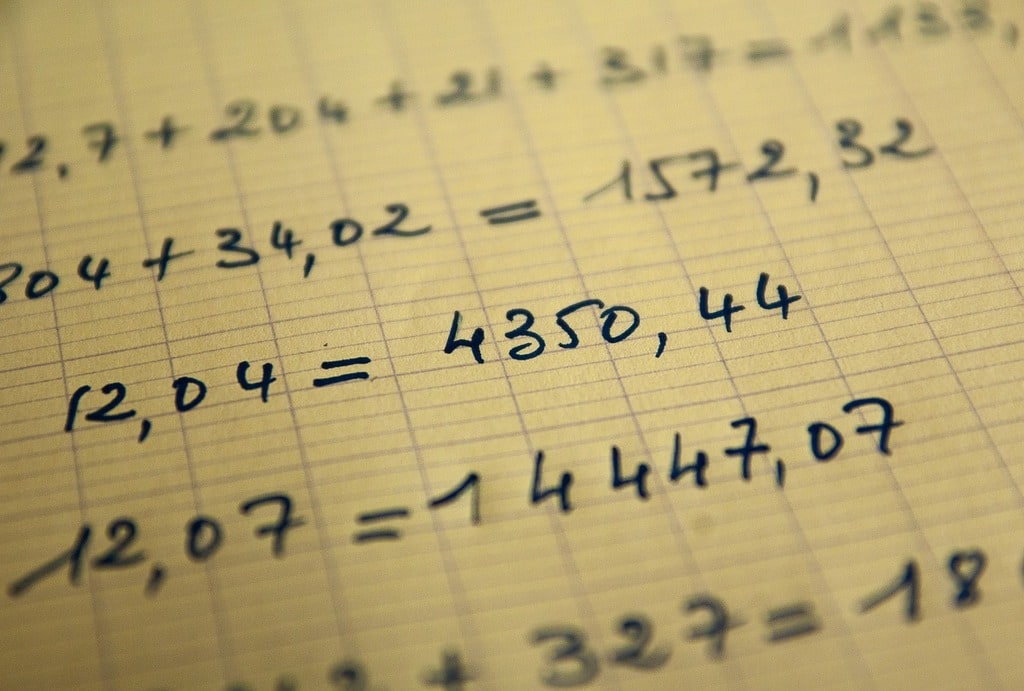 2,7 + 204 + 21 + 317 = 1133,
304 + 34,02 = 1572,32
12,04 = 4350,44
12,07 = 14447,07
2 + 327 = 18